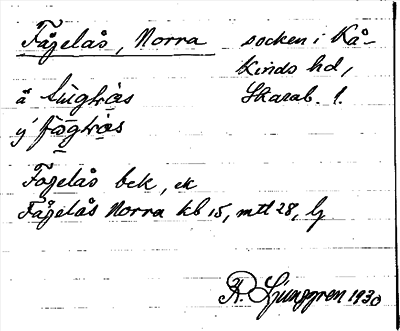 Fågelås, Norra socken i Kå-
kinds hd,
Skarab. l.
ä
y
Fågelås bek, ek
Fågelås Norra kb 15, mtl 28, lj
R. Ljunggren 1930